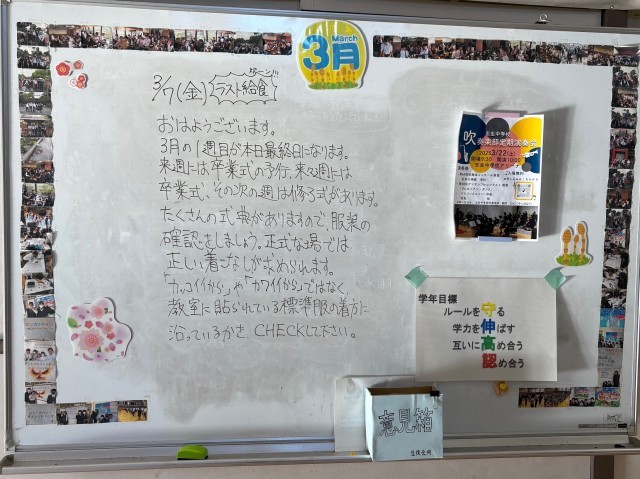 March
3月
3/7(金) ラスト給食
おはようございます。
3月の1週目が本日最終日になります。
来週には卒業式の予行、来々週には
卒業式、その次の週は修了式があります。
たくさんの式典がありますので、服装の
確認をしましょう。正式な場では
正しい着こなしが求められます。
「カッコイイから」や「カワイイから」ではなく、
教室に貼られている標準服の着方に
沿っているかを CHECKして下さい。
吹奏楽部定期演奏会
2025 3/22(土)
学年目標
ルールを守る
学力を伸ばす
互いに高め合う
認め合う
意見箱